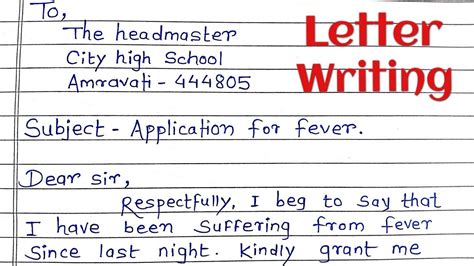 To,
The headmaster
City high School
Amravati - 444805
Letter
Writing
Subject - Application for fever.
Dear sir,
Respectfully, I beg to say that
I have been suffering from fever
Since last night. Kindly grant me